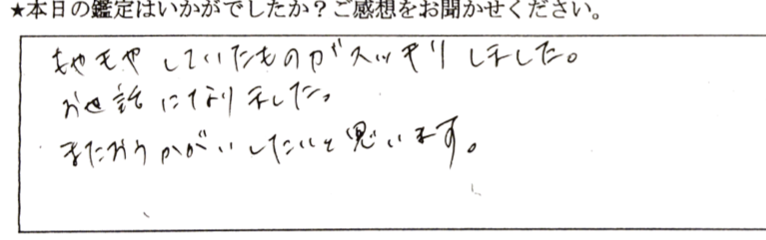 ★本日の鑑定はいかがでしたか？ご感想をお聞かせください。
もやもやしていたものがスッキリしました。
お世話になりました。
またおうかがいしたいと思います。